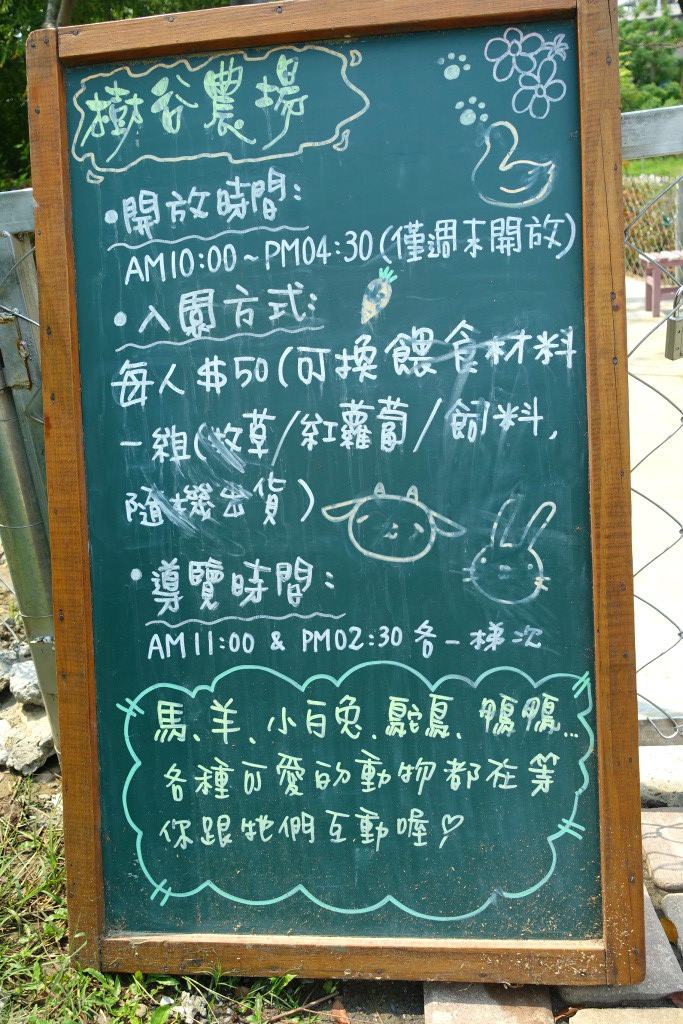 樹谷農場
•開放時間:
AM10:00~PM04:30(僅週末開放)
•入園方式:
每人$50(可換餵食材料
一組(牧草/紅蘿蔔/飼料,
隨機出貨)
•導覽時間:
AM11:00 & PM02:30 各一梯次
馬、羊、小白兔、鴕鳥、鴨鴨...
各種可愛的動物都在等
你跟牠們互動喔♡